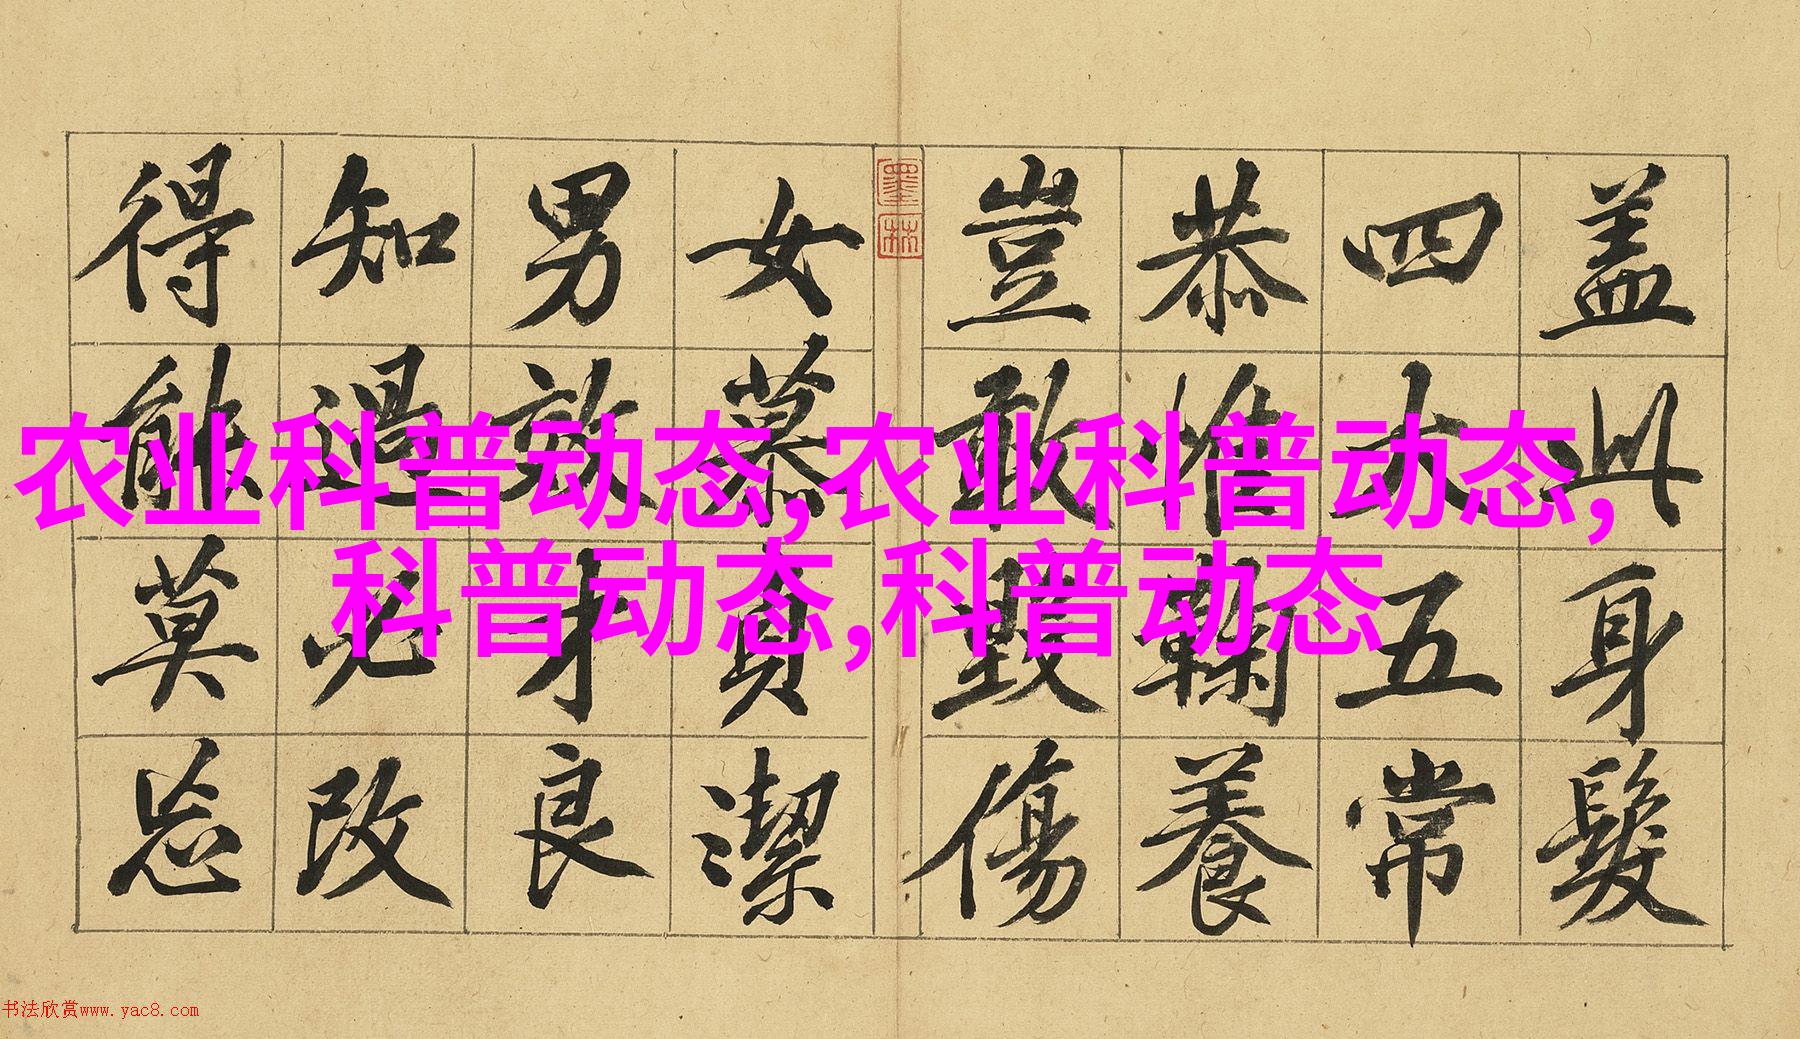 盖此身髮
四大五常
恭惟鞠養
豈敢毀傷
女慕貞潔
男效才良
知過必改
得能莫忘
墨林
农业科普动态,农业科普动态,
科普动态,科普动态
书法欣赏www.yac8.com